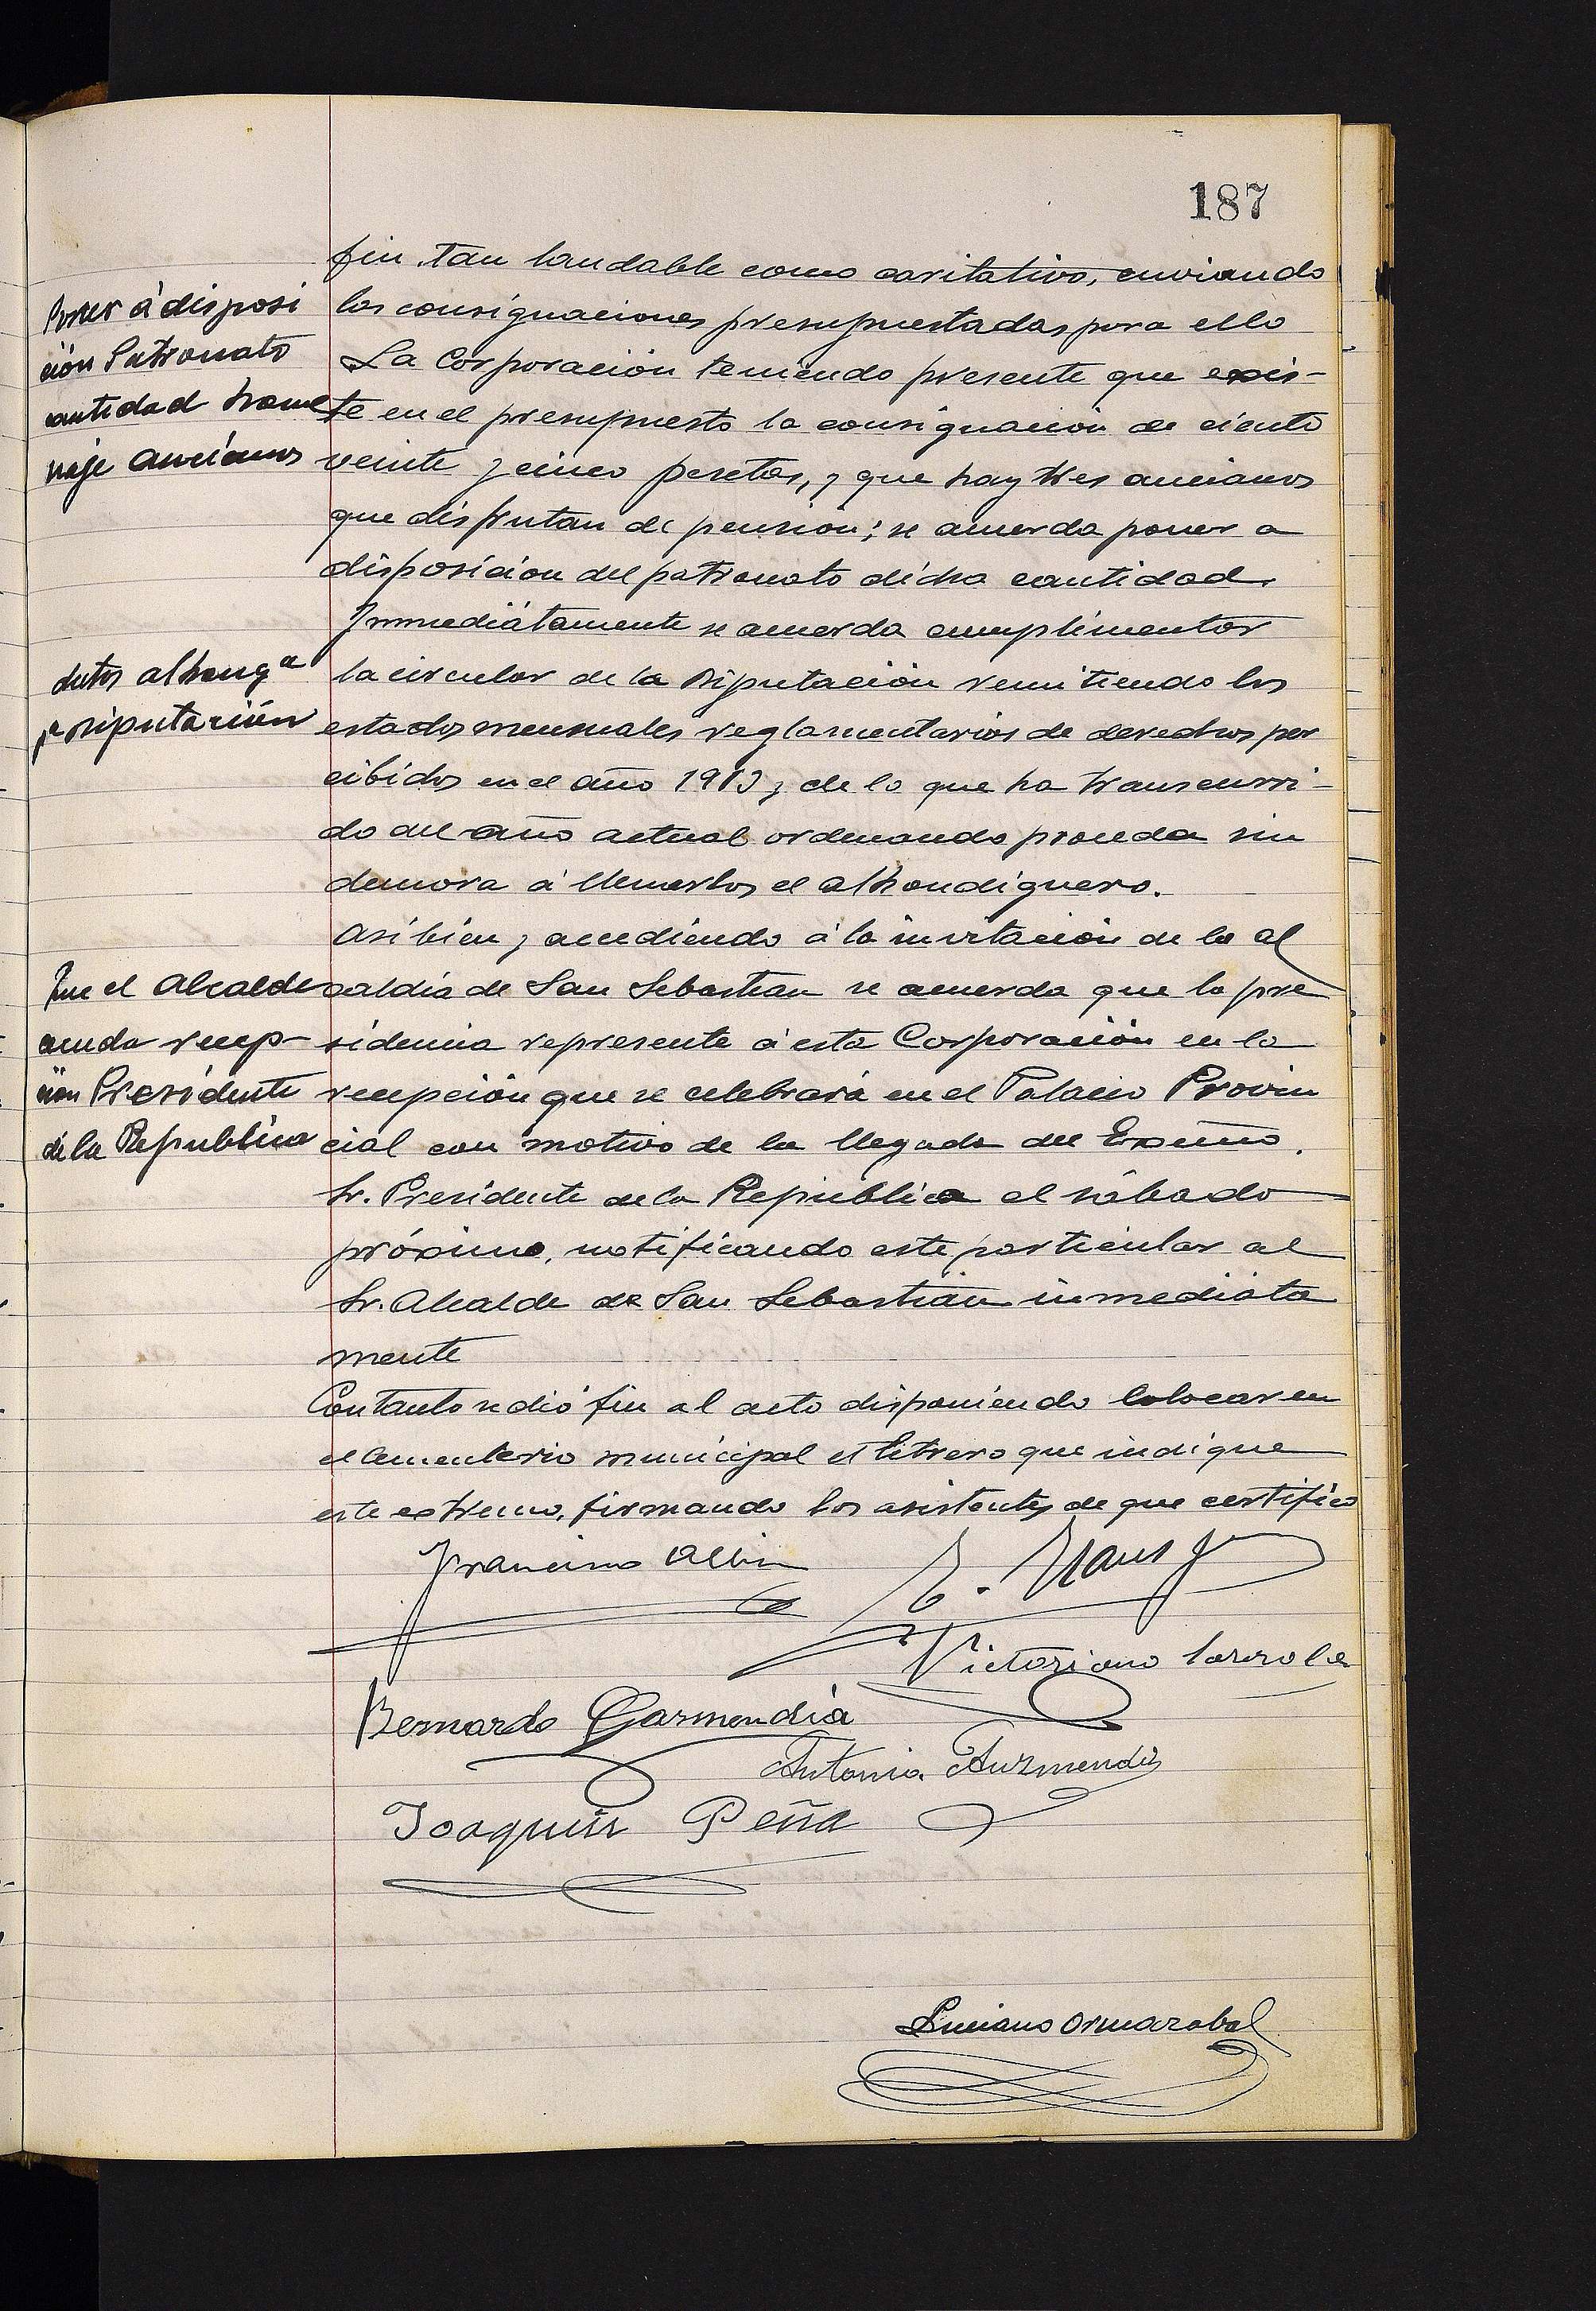 187
fin tan laudable como caritativo, enviando
las consignaciones presupuestadas para ello
La Corporación teniendo presente que exis-
te en el presupuesto la consignación de ciento
veinte y cinco pesetas, y que hay tres ancianos
que disfrutan de pensión; se acuerda poner a
disposición del patronato dicha cantidad.
Poner á disposi
ción Patronato
cantidad home
naje ancianos
Inmediátamente se acuerda cumplimentar
la circular de la Diputación remitiendo los
estados mensuales reglamentarios de derechos per
cibidos en el año 1913 y de lo que ha transcurri-
do del año actual ordenando proceda sin
demora á llenarlos el alhondiguero.
datos alhongª
pª Diputación
Asi bien y accediendo á la invitación de la al
caldía de San Sebastian se acuerda que la pre
sidencia represente á esta Corporación en la
recepción que se celebrará en el Palacio Provin
cial con motivo de la llegada del Excmo.
Sr. Presidente de la República el sábado
próximo, notificando este particular al
Sr. Alcalde de San Sebastián inmediata
mente
Que el Alcalde
acuda recep-
ción Presidente
de la Republica
Con tanto se dió fin al acto disponiendo colocar en
el Cementerio municipal el letrero que indique
este extremo, firmando los asistentes de que certifico
Francisco Albin
Victoriano Larrola
Bernardo Garmendia
Antonio Aurmendi
Joaquin Peña
Luciano Ormazabal